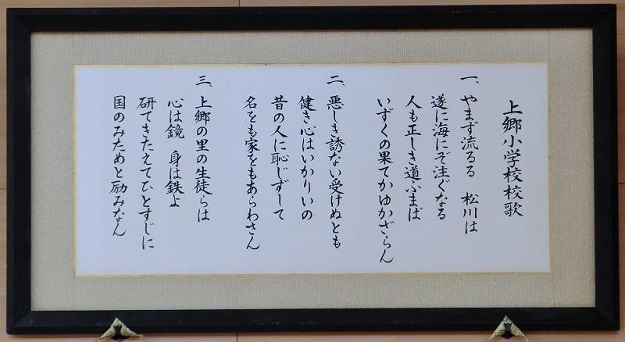 上郷小学校校歌
一、やまず流るる　松川は
遂に海にぞ注ぐなる
人も正しき道ふまば
いずくの果てかゆかざらん
二、悪しき誘ない受けぬとも
健き心はいかりいの
昔の人に恥じずして
名をも家をもあらわさん
三、上郷の里の生徒らは
心は鏡　身は鉄よ
研てきたえてひとすじに
国のみためと励みなん